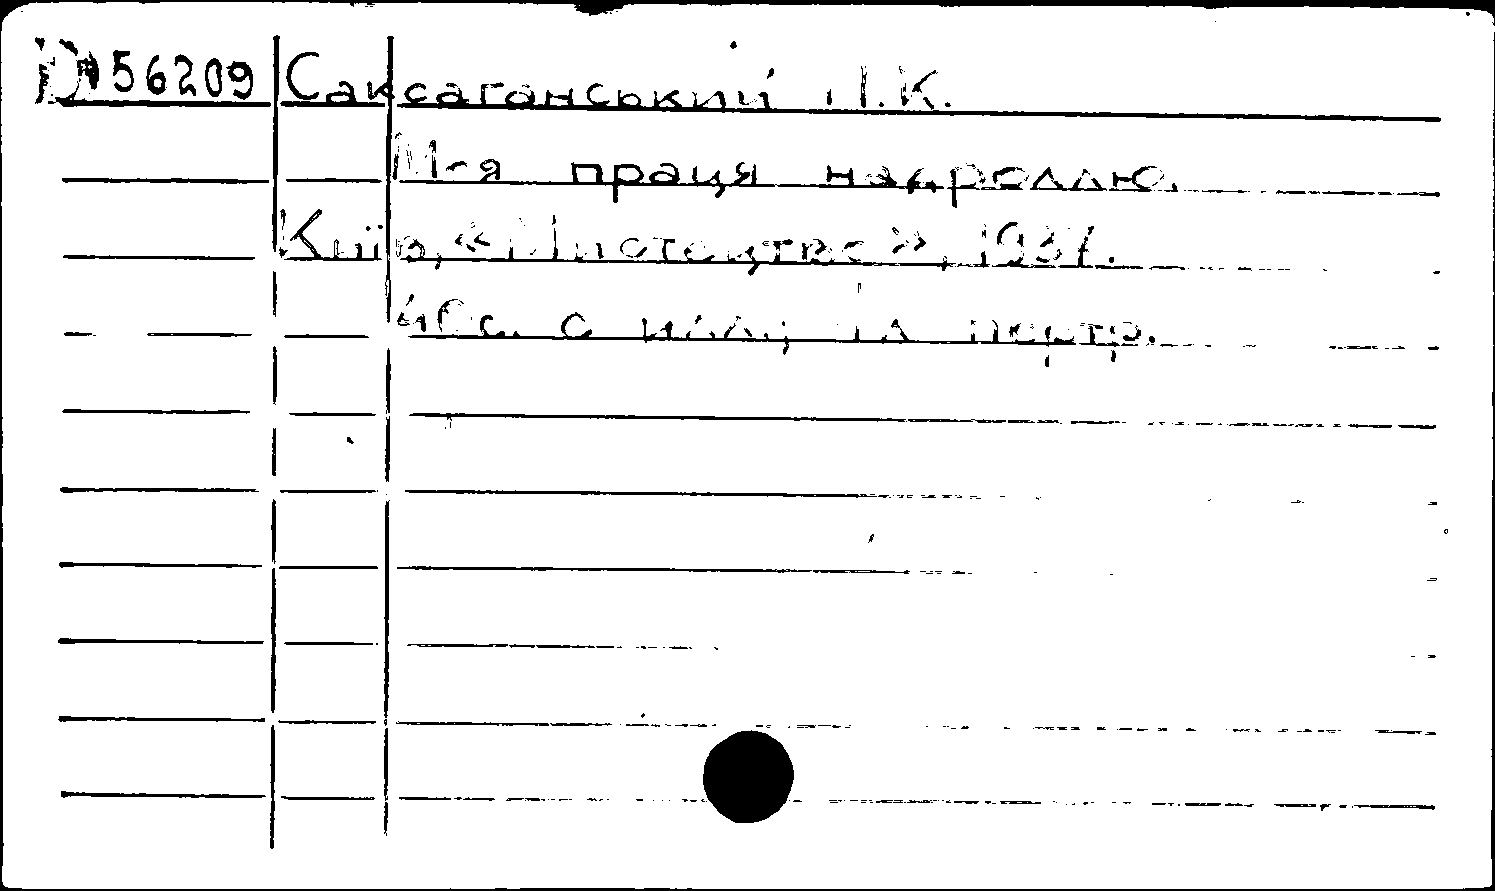 D 56209 Саксаганський П.К.
М-я праця над роллю.
Київ, «Мистецтво», 1937.
с. с илл.; портр.